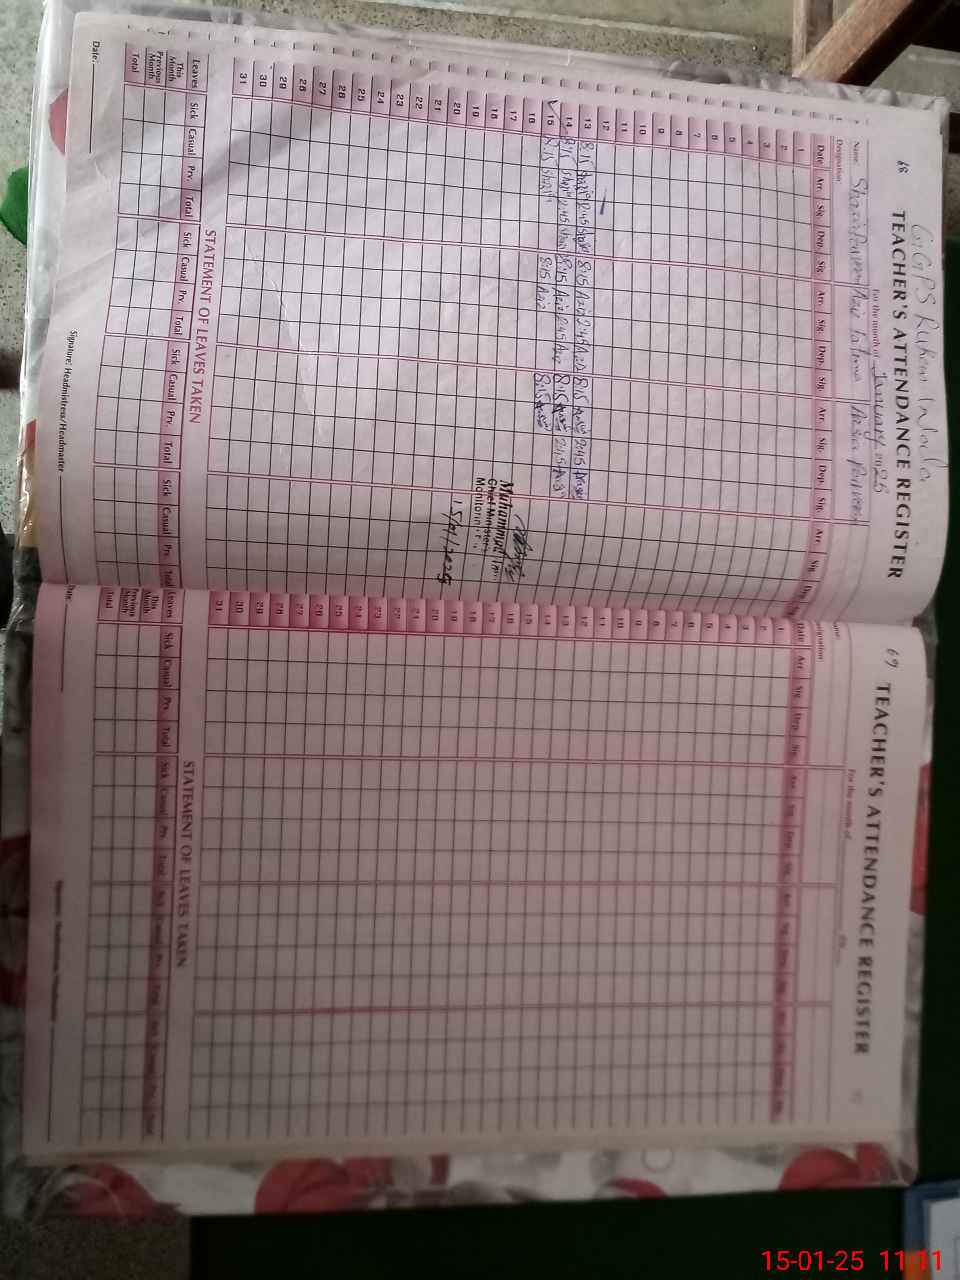 68
GGPS Rukan Wala
TEACHER'S ATTENDANCE REGISTER
For the month of January 2025
Name: Shazia Parveen Azia Fatima Asia Parveen
Designation
Date Arr. Sig. Dep. Sig. Arr. Sig. Dep. Sig. Arr. Sig. Dep. Sig. Arr. Sig. Dep.
1
2
3
4
5
6
7
8
9
10
11
12
13 8:15 2:45 8:15 2:45 8:15 2:45
14 8:15 2:45 8:15 2:45 8:15 2:45
15 8:15 8:15 8:15
16
17
18
19
20
21
22
23
24
25
26
27
28
29
30
31
Muhammad
Chief Minister's
Monitorin
15/01/2025
STATEMENT OF LEAVES TAKEN
Leaves Sick Casual Prv. Total Sick Casual Prv. Total Sick Casual Prv. Total Sick Casual Prv. Total
This Month
Previous Month
Total
Date:
Signature: Headmistress/Headmaster
69
TEACHER'S ATTENDANCE REGISTER
For the month of
Name:
Designation
Date Arr. Sig. Dep. Sig. Arr. Sig. Dep. Sig.
1
2
3
4
5
6
7
8
9
10
11
12
13
14
15
16
17
18
19
20
21
22
23
24
25
26
27
28
29
30
31
STATEMENT OF LEAVES TAKEN
Leaves Sick Casual Prv. Total Sick Casual Prv. Total
This Month
Previous Month
Total
Date:
Signature: Headmistress/Headmaster
15-01-25 11:11